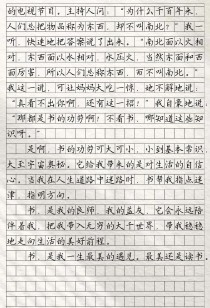 的电视节目,主持人问:“为什么千百年来,
人们总把物品称为东西,却不叫南北?”我一
听,快速地把答案说了出来。“南北面以火相
对,东西面以木相对,水压火,当然东面和西
面厉害,所以人们总称东西,而不叫南北。”
我这一说,可让妈妈大吃一惊,她不解地说:
“真看不出你啊,还有这一招?”我自豪地说:
“那都是书的功劳啊!不看书,哪知道这些知
识呀。”
是啊,书的功劳可大可小,小到基本常识,
大至宇宙奥秘。它给我带来的是对生活的自信
心。当我在人生道路中迷路时,书帮我指点迷
津,指明方向。
书,是我的良师,我的益友,它会永远陪
伴着我,把我带入无穷的大千世界,带我稳稳
地走向生活的美好前程。
书,是我一生最美的遇见,最美还是读书。